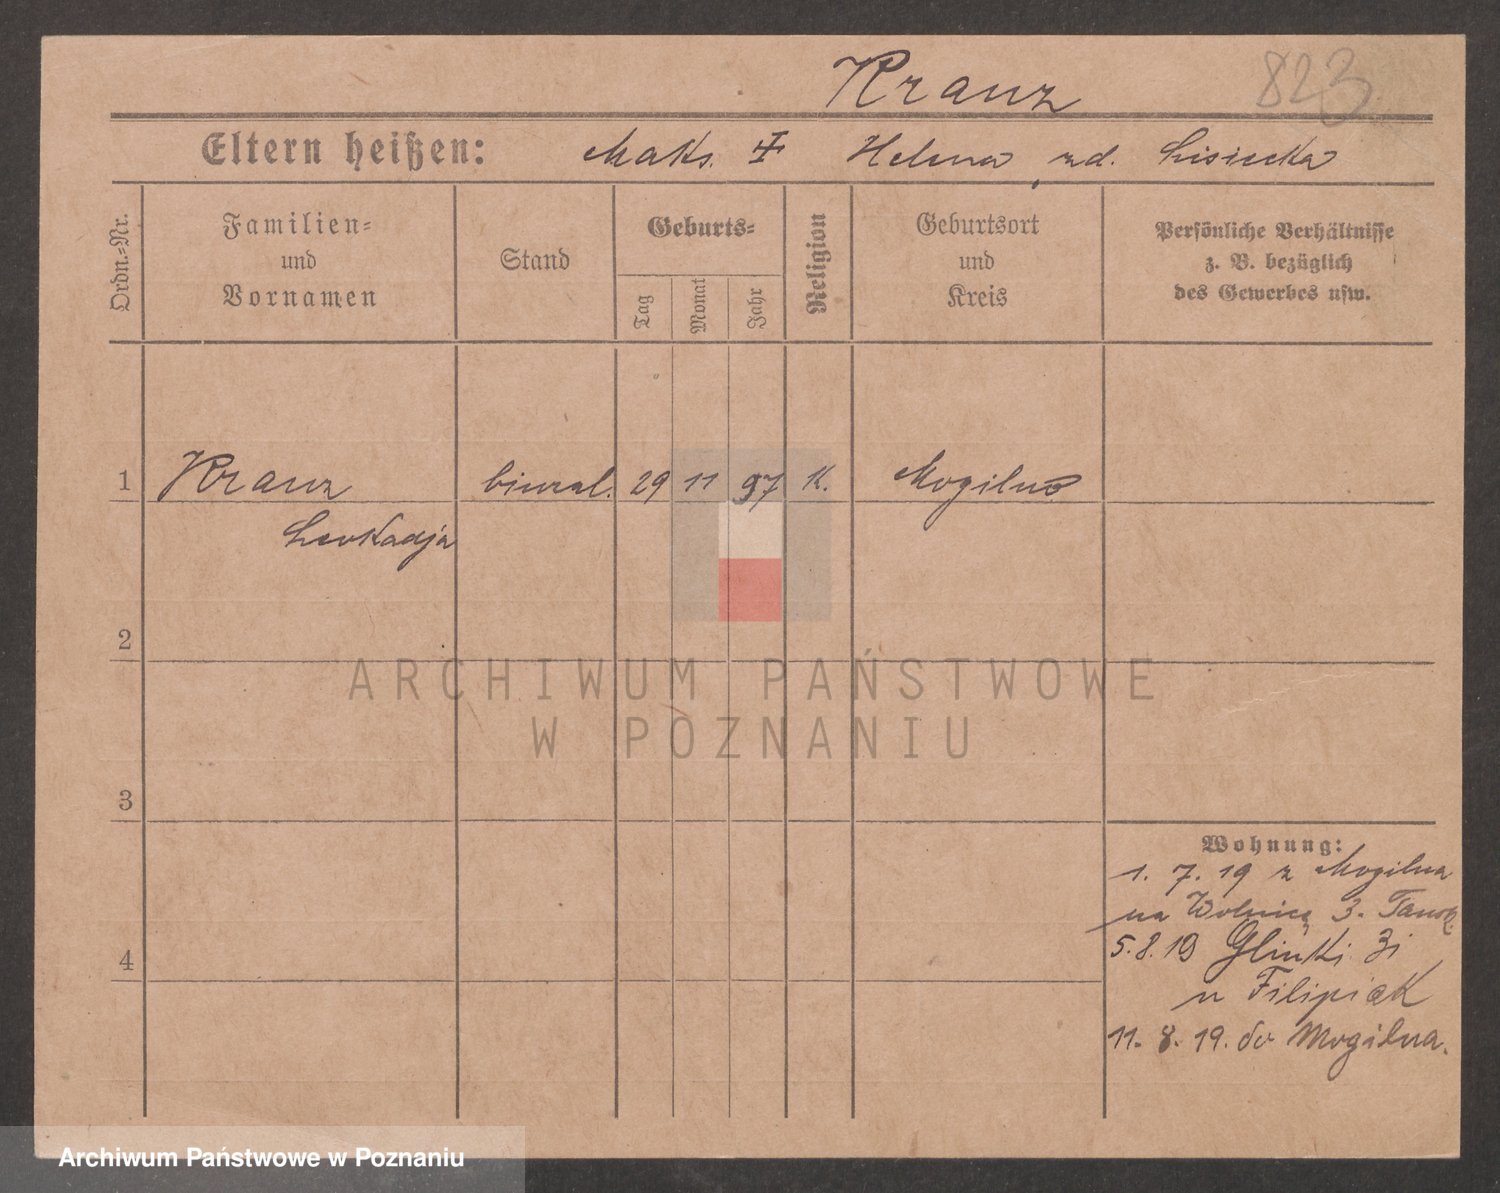 Kranz 823
Eltern heißen: Maks. Helena, zd. Lisiecka
Ordn.-Nr. Familien- und Vornamen Stand Geburts- Tag Monat Jahr Religion Geburtsort und Kreis Persönliche Verhältnisse z. B. bezüglich des Gewerbes usw.
1 Kranz biural. 29 11 97 K. Mogilno
Leokadja
2
ARCHIWUM PAŃSTWOWE
W POZNANIU
3
Wohnung:
1. 7. 19 z Mogilna
na Wolnicę 3.
5.8.19 Glinki 3i
u Filipiak
4
11. 8. 19. do Mogilna.
Archiwum Państwowe w Poznaniu